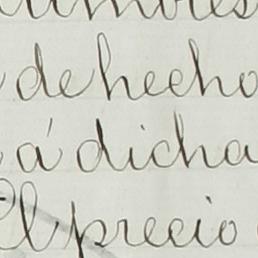 de hecho
á dicha
El precio